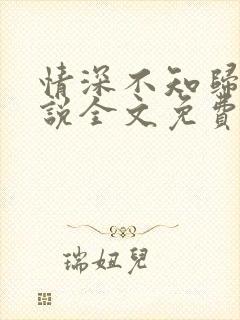 情深不知歸
説全文免費
瑞妞兒